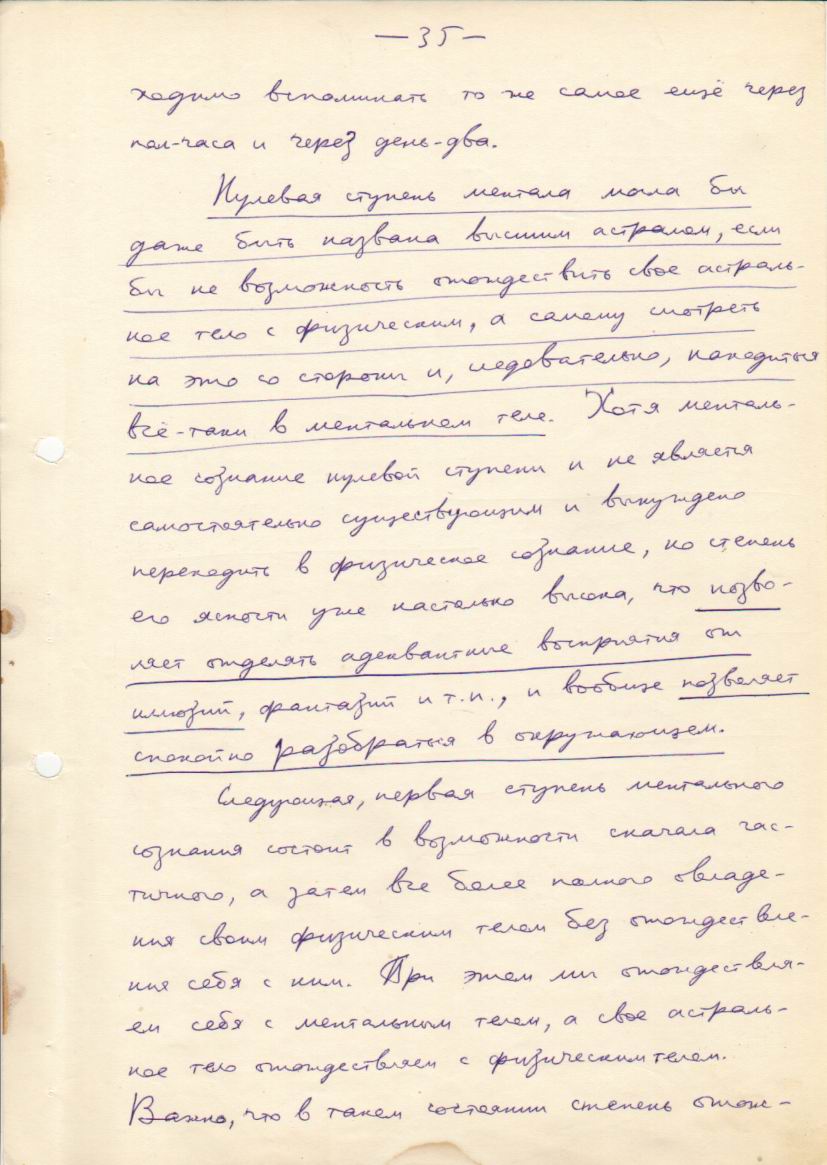 — 35 —
ходимо вспоминать то же самое ещё через
пол-часа и через день-два.
Нулевая ступень ментала могла бы
даже быть названа высшим астралом, если
бы не возможность отождествить свое астраль-
ное тело с физическим, а самому смотреть
на это со стороны и, следовательно, находиться
всё-таки в ментальном теле. Хотя менталь-
ное сознание нулевой ступени и не является
самостоятельно существующим и вынуждено
переходить в физическое сознание, но степень
его ясности уже настолько высока, что позво-
ляет отделять адекватные восприятия от
иллюзий, фантазий и т.п., и вообще позволяет
спокойно разобраться в окружающем.
Следующая, первая ступень ментального
сознания состоит в возможности сначала час-
тичного, а затем все более полного овладе-
ния своим физическим телом без отождествле-
ния себя с ним. При этом мы отождествля-
ем себя с ментальным телом, а свое астраль-
ное тело отождествляем с физическим телом.
Важно, что в таком состоянии степень отож-